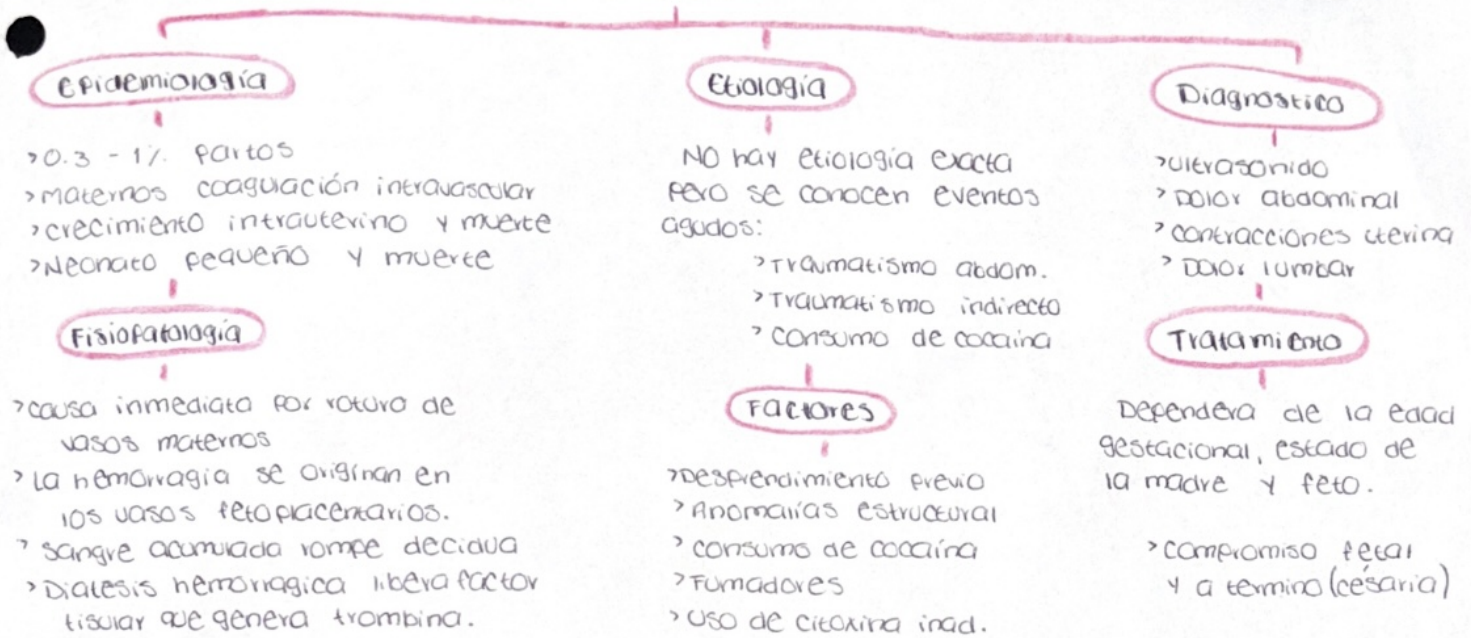 Epidemiología
>0.3 - 1% Partos
>maternos coagulación intravascular
>crecimiento intrauterino y muerte
>Neonato pequeño y muerte
Fisiopatología
>causa inmediata por rotura de
vasos maternos
>La hemorragia se originan en
los vasos fetoplacentarios.
>Sangre acumulada rompe decidua
>Diatesis hemorragica libera factor
tisular que genera trombina.
Etiología
NO hay etiología exacta
pero se conocen eventos
agudos:
>Traumatismo abdom.
>Traumatismo indirecto
>Consumo de cocaina
Factores
>Desprendimiento previo
>Anomalías estructural
>consumo de cocaína
>Fumadores
>Uso de citoxina inad.
Diagnostico
>Ultrasonido
>Dolor abdominal
>contracciones uterina
>Dolor lumbar
Tratamiento
Dependera de la edad
gestacional, estado de
la madre y feto.
>compromiso fetal
y a termino (césaria)